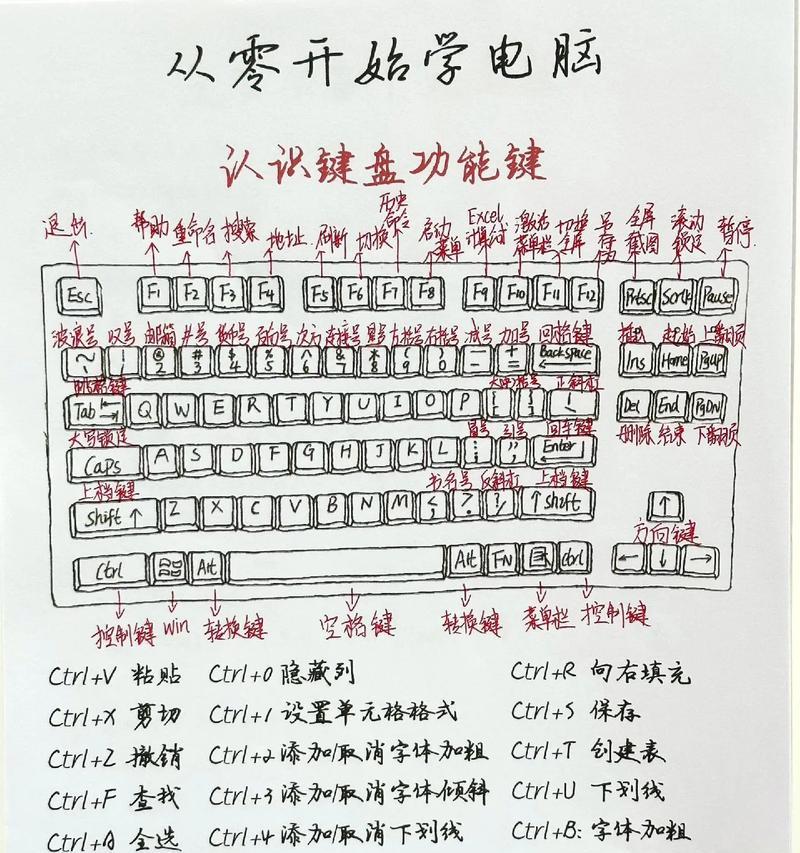 从零开始学电脑
认识键盘功能键
退出 帮助 重命名 搜索 地址 刷新 切换 历史命令 启动菜单 Excel计算公式 激活菜单栏 切换全屏 另存为 全屏截图 滚动锁定 暂停
Esc F1 F2 F3 F4 F5 F6 F7 F8 F9 F10 F11 F12 Prtsc Scrlk Pause
波浪号 叹号 邮箱 井号 货币号 百分号 次方 连接号 星号 左括号 右括号 减号 加号 回格键 插入 起始 上翻页
~ ` ! @ 2 # 3 $ 4 % 5 ^ 6 & 7 * 8 ( 9 ) 0 — - + = Backspace ← Ins Home PgUp
制表键 大中括号 正斜杠
Tab Q W E R T Y U I O P Del End PgDn
大写锁定 冒号 引号 回车键 删除 结束 下翻页
Caps A S D F G H J K L Enter
上档键 书名号 反斜杠 上档键
Shift ↑ Z X C V B N M ↑ Shift ↑
方向键
Ctrl Alt Alt FN Ctrl ← ↓ →
控制键 Win 转换键 空格键 转换键 菜单栏 控制键
Ctrl+V 粘贴 Ctrl+0 隐藏列 Ctrl+R 向右填充
Ctrl+X 剪切 Ctrl+1 设置单元格格式 Ctrl+S 保存
Ctrl+Z 撤销 Ctrl+2 添加/取消字体加粗 Ctrl+T 创建表
Ctrl+F 查找 Ctrl+3 添加/取消字体倾斜 Ctrl+U 下划线
Ctrl+A 全选 Ctrl+4 添加/取消下划线 Ctrl+B: 字体加粗